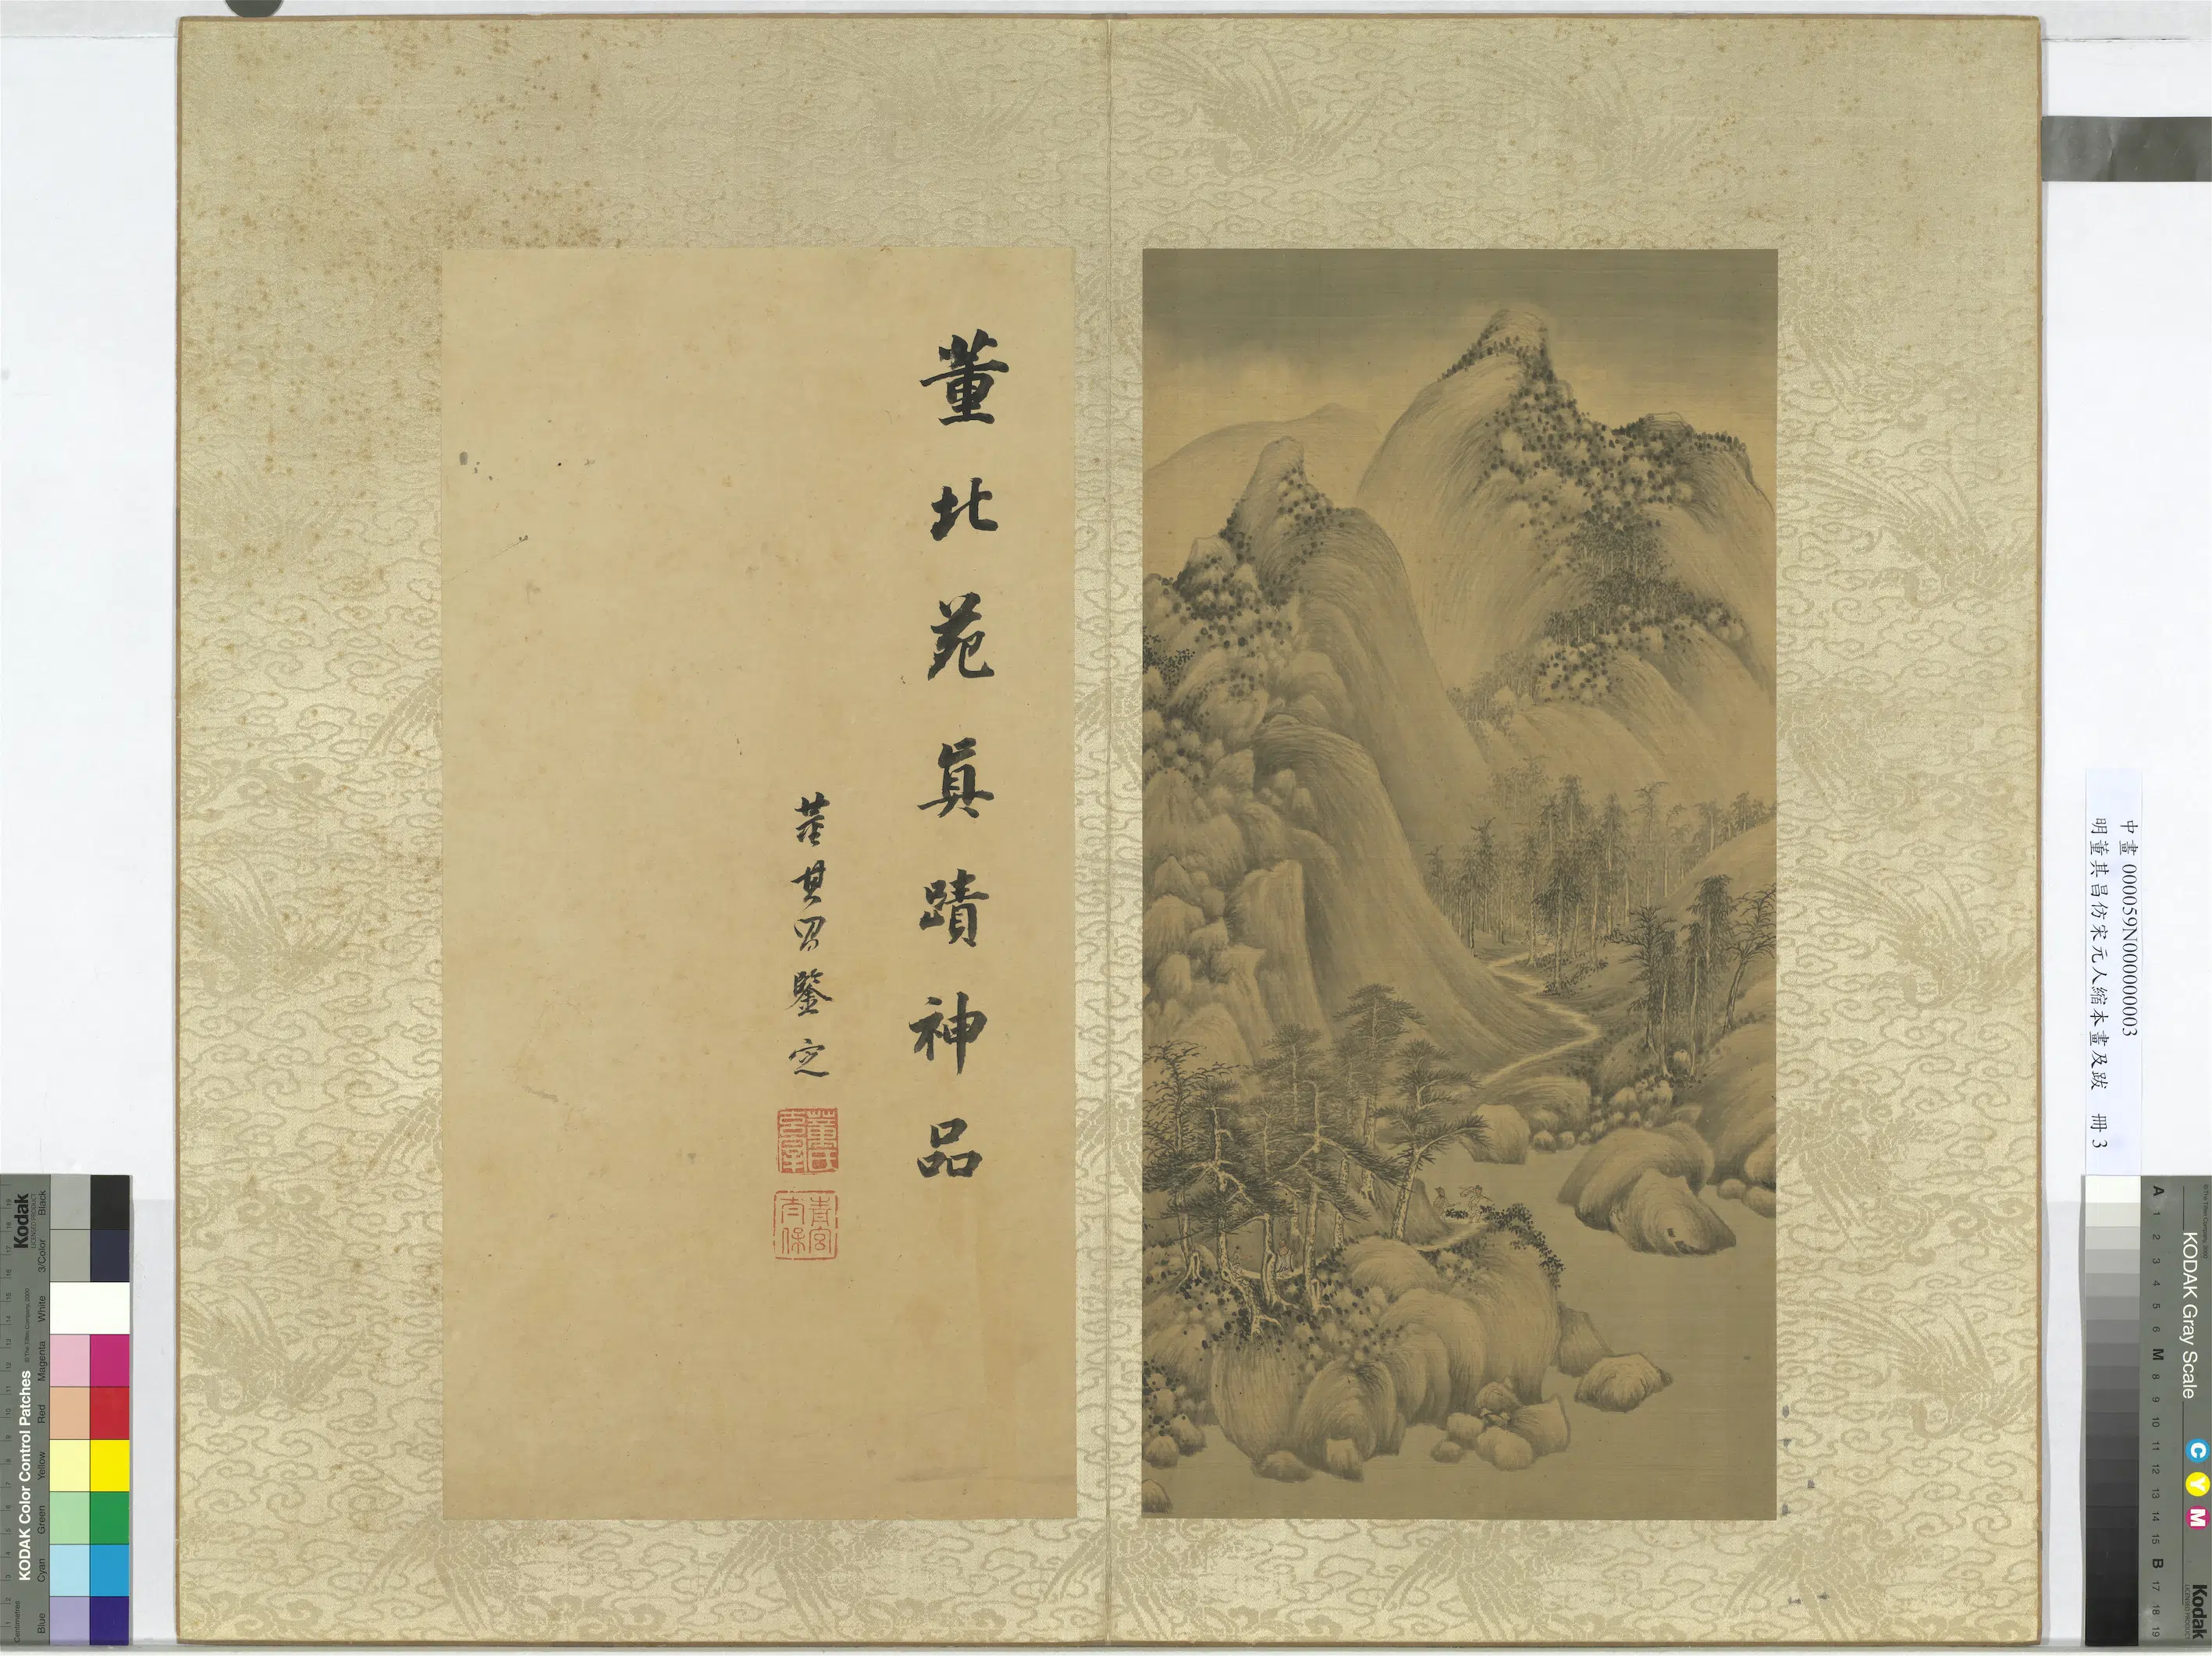 董北苑真蹟神品
董其昌鑒定
董氏玄宰
青宮太保
中畫 000059N000000003
明董其昌仿宋元人縮本畫及跋 冊 3
Kodak
KODAK Color Control Patches
Blue Cyan Green Yellow Red Magenta White 3/Color Black
Centimetres
KODAK Gray Scale
C Y M
Kodak
A 1 2 3 4 5 6 M 8 9 10 11 12 13 14 15 B 17 18 19